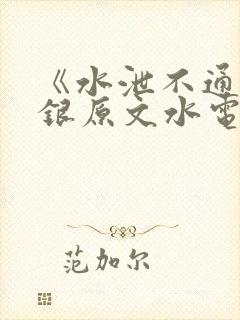 《水泄不通
銀原文水電
范加尔